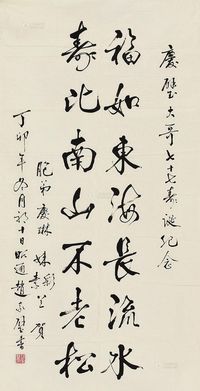 慶璧大哥七十七寿诞纪念
福如東海長流水
寿比南山不老松
胞弟慶琳 妹彩素兰賀
丁卯年 月初十日昭通趙家璧書